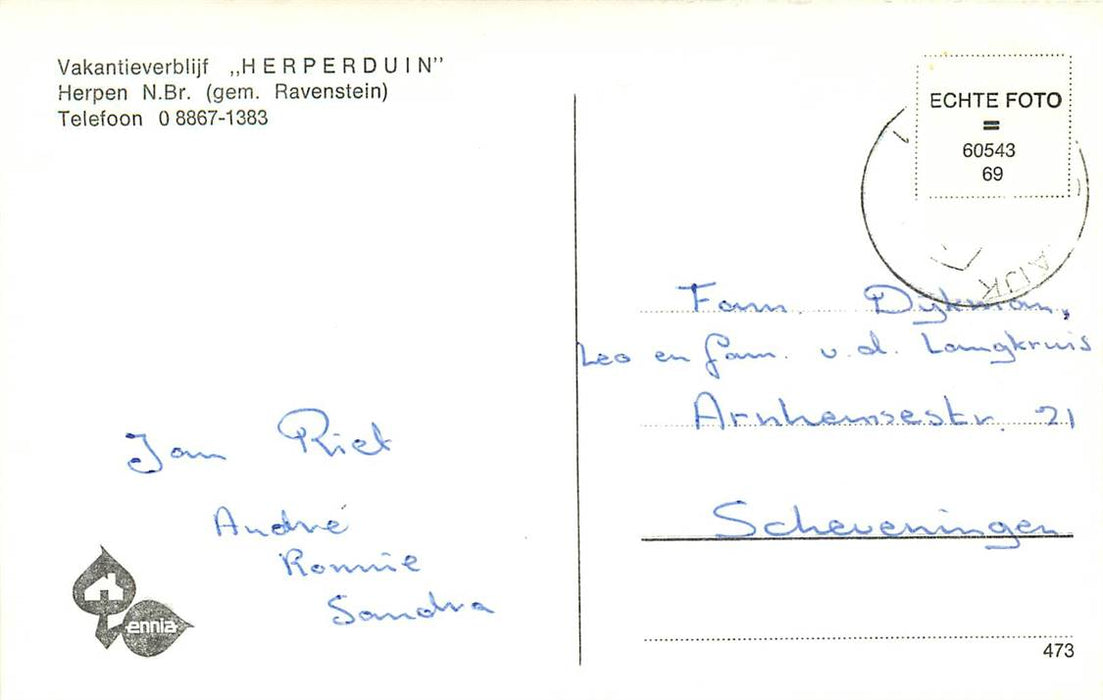 Vakantieverblijf „HERPERDUIN”
Herpen N.Br. (gem. Ravenstein)
Telefoon 0 8867-1383
Jan Riet
André
Ronnie
Sandra
ennia
ECHTE FOTO
=
60543
69
Fam. Dijkman,
Leo en fam. v.d. Langkruis
Arnhemsestr. 21
Scheveningen
473